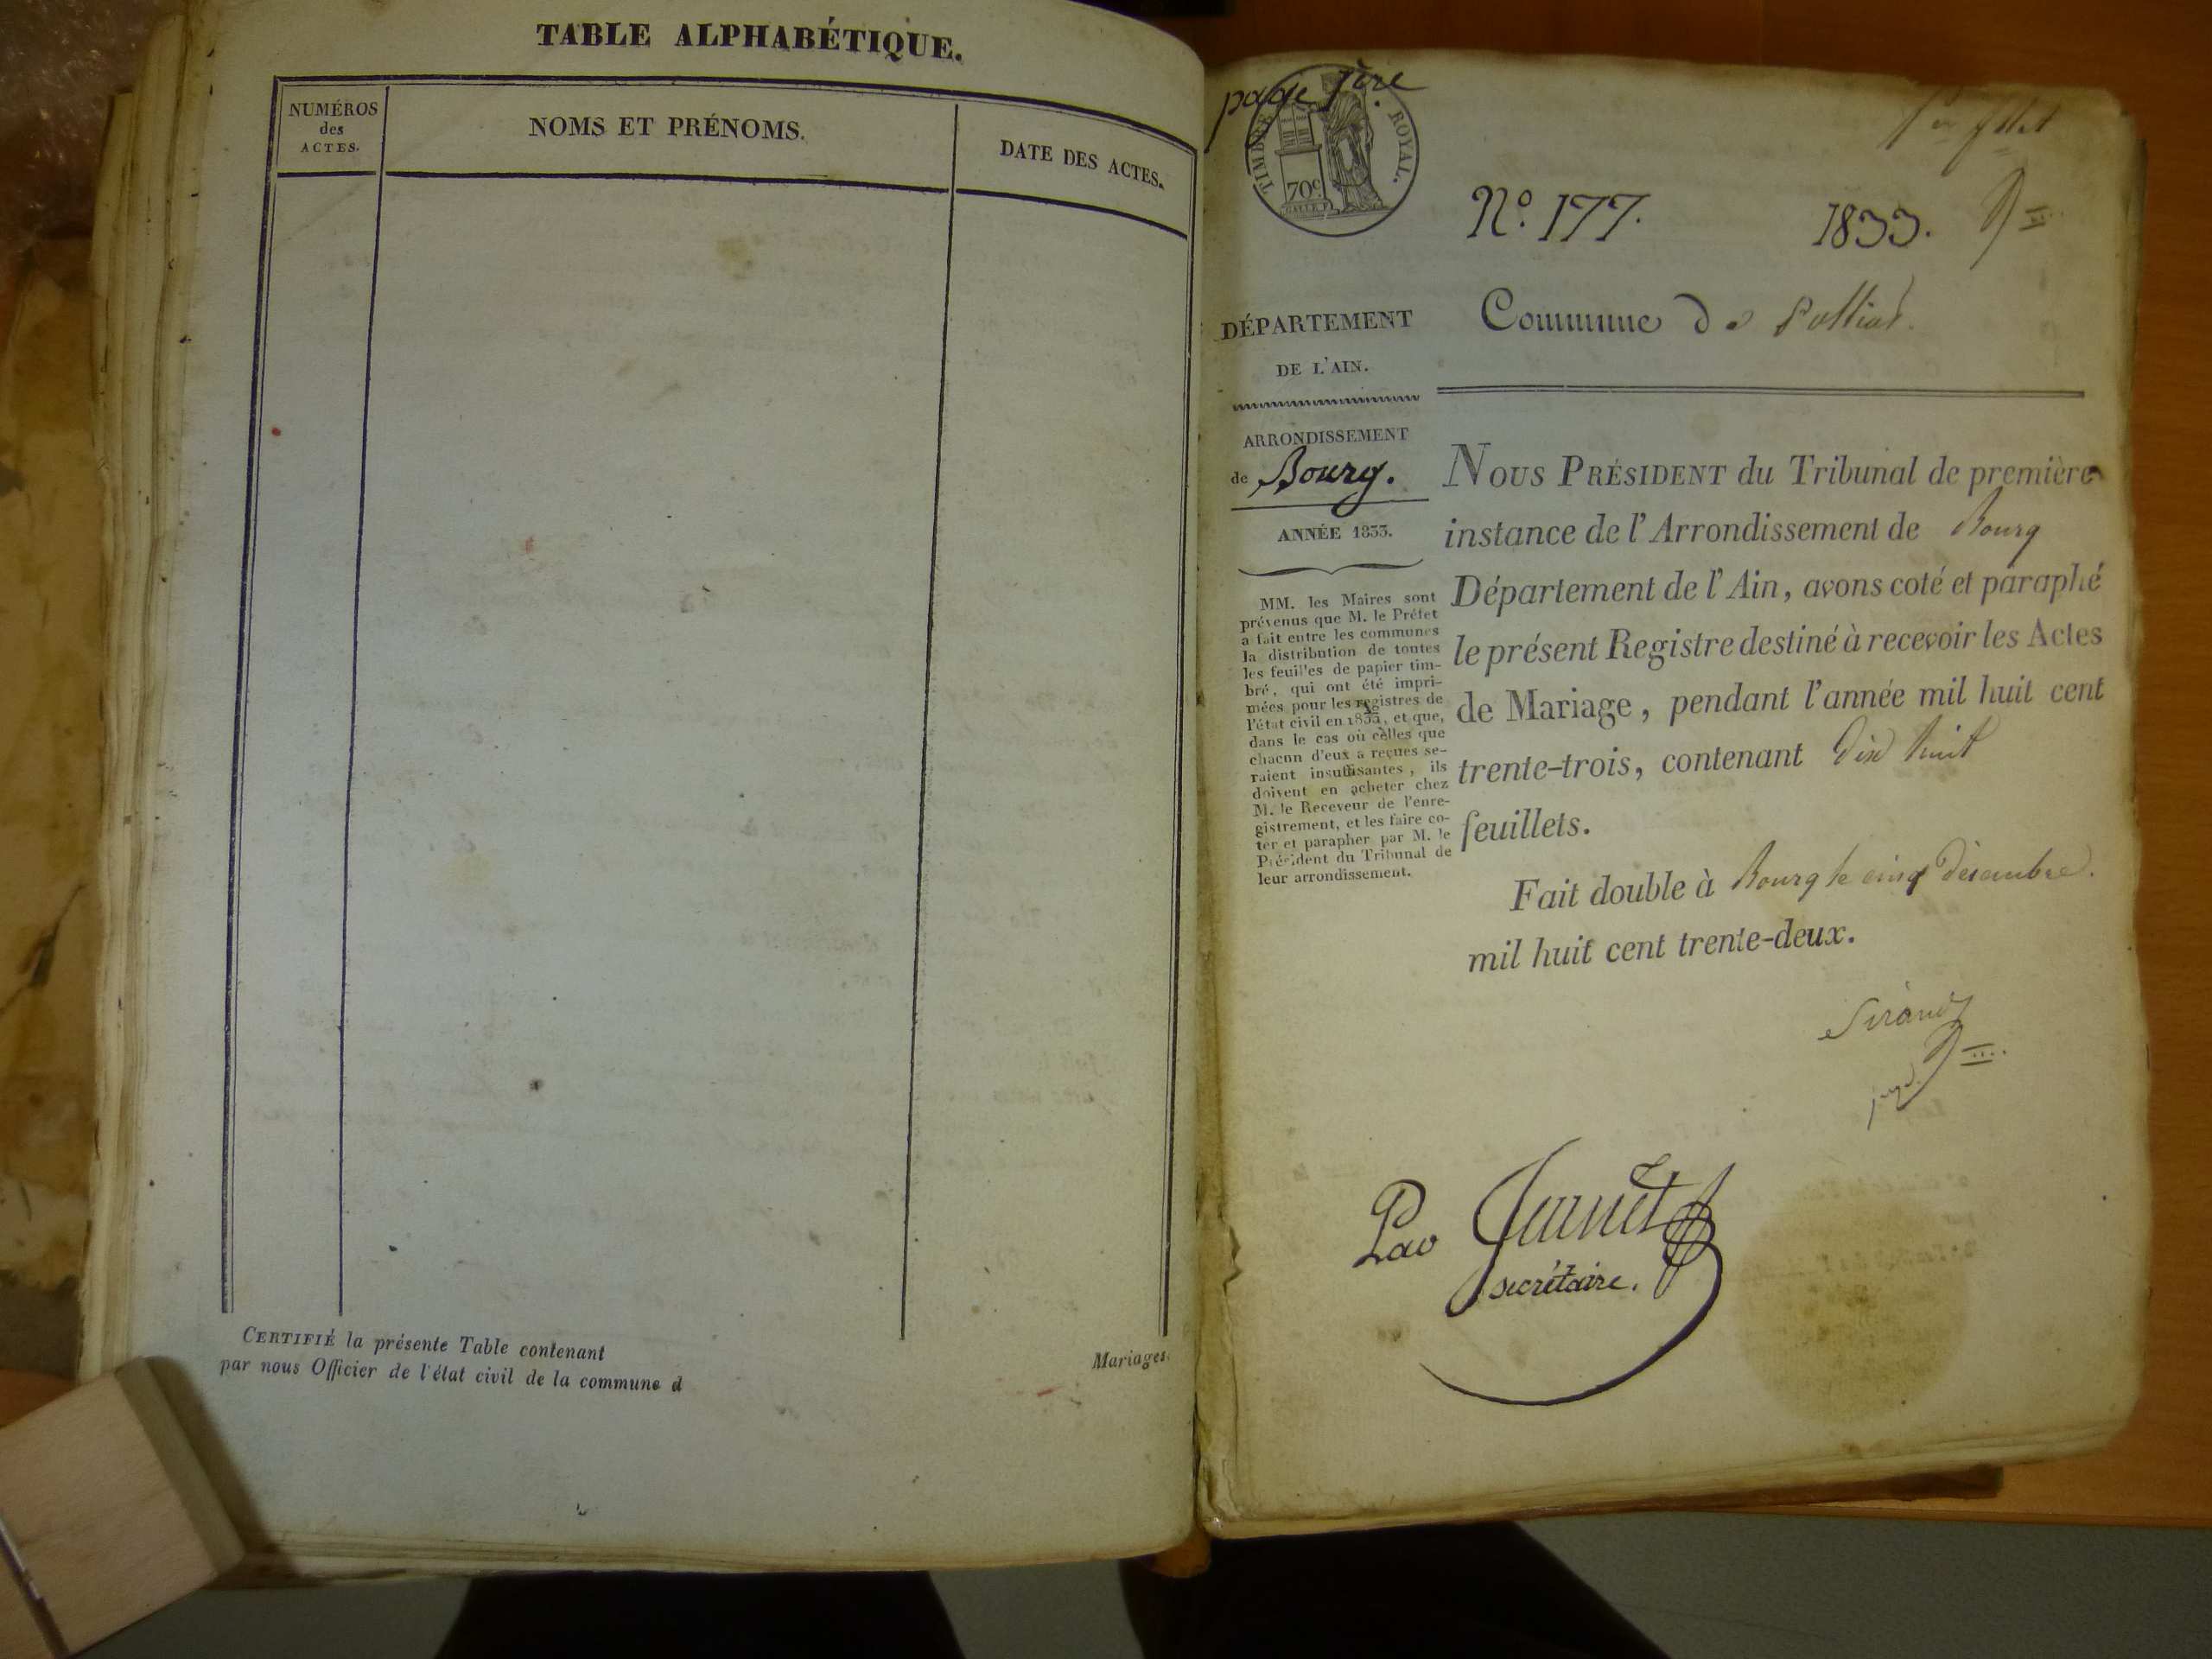 TABLE ALPHABÉTIQUE.
NUMÉROS
des
ACTES.
NOMS ET PRÉNOMS.
DATE DES ACTES.
CERTIFIÉ la présente Table contenant
par nous Officier de l'état civil de la commune d
Mariages.
page 1ère
TIMBRE ROYAL.
70c.
N.o 177.
1833.
Commune de Polliat.
DÉPARTEMENT
DE L'AIN.
ARRONDISSEMENT
de Bourg.
ANNÉE 1833.
MM. les Maires sont
prévenus que M. le Préfet
a fait entre les communes
la distribution de toutes
les feuilles de papier tim-
bré, qui ont été impri-
mées pour les registres de
l'état civil en 1833, et que,
dans le cas où celles que
chacun d'eux a reçues se-
raient insuffisantes, ils
doivent en acheter chez
M. le Receveur de l'enre-
gistrement, et les faire co-
ter et parapher par M. le
Président du Tribunal de
leur arrondissement.
NOUS PRÉSIDENT du Tribunal de première
instance de l'Arrondissement de Bourg
Département de l'Ain, avons coté et paraphé
le présent Registre destiné à recevoir les Actes
de Mariage, pendant l'année mil huit cent
trente-trois, contenant dix huit
feuillets.
Fait double à Bourg le cinq décembre.
mil huit cent trente-deux.
Sirand
juge
Secrétaire.